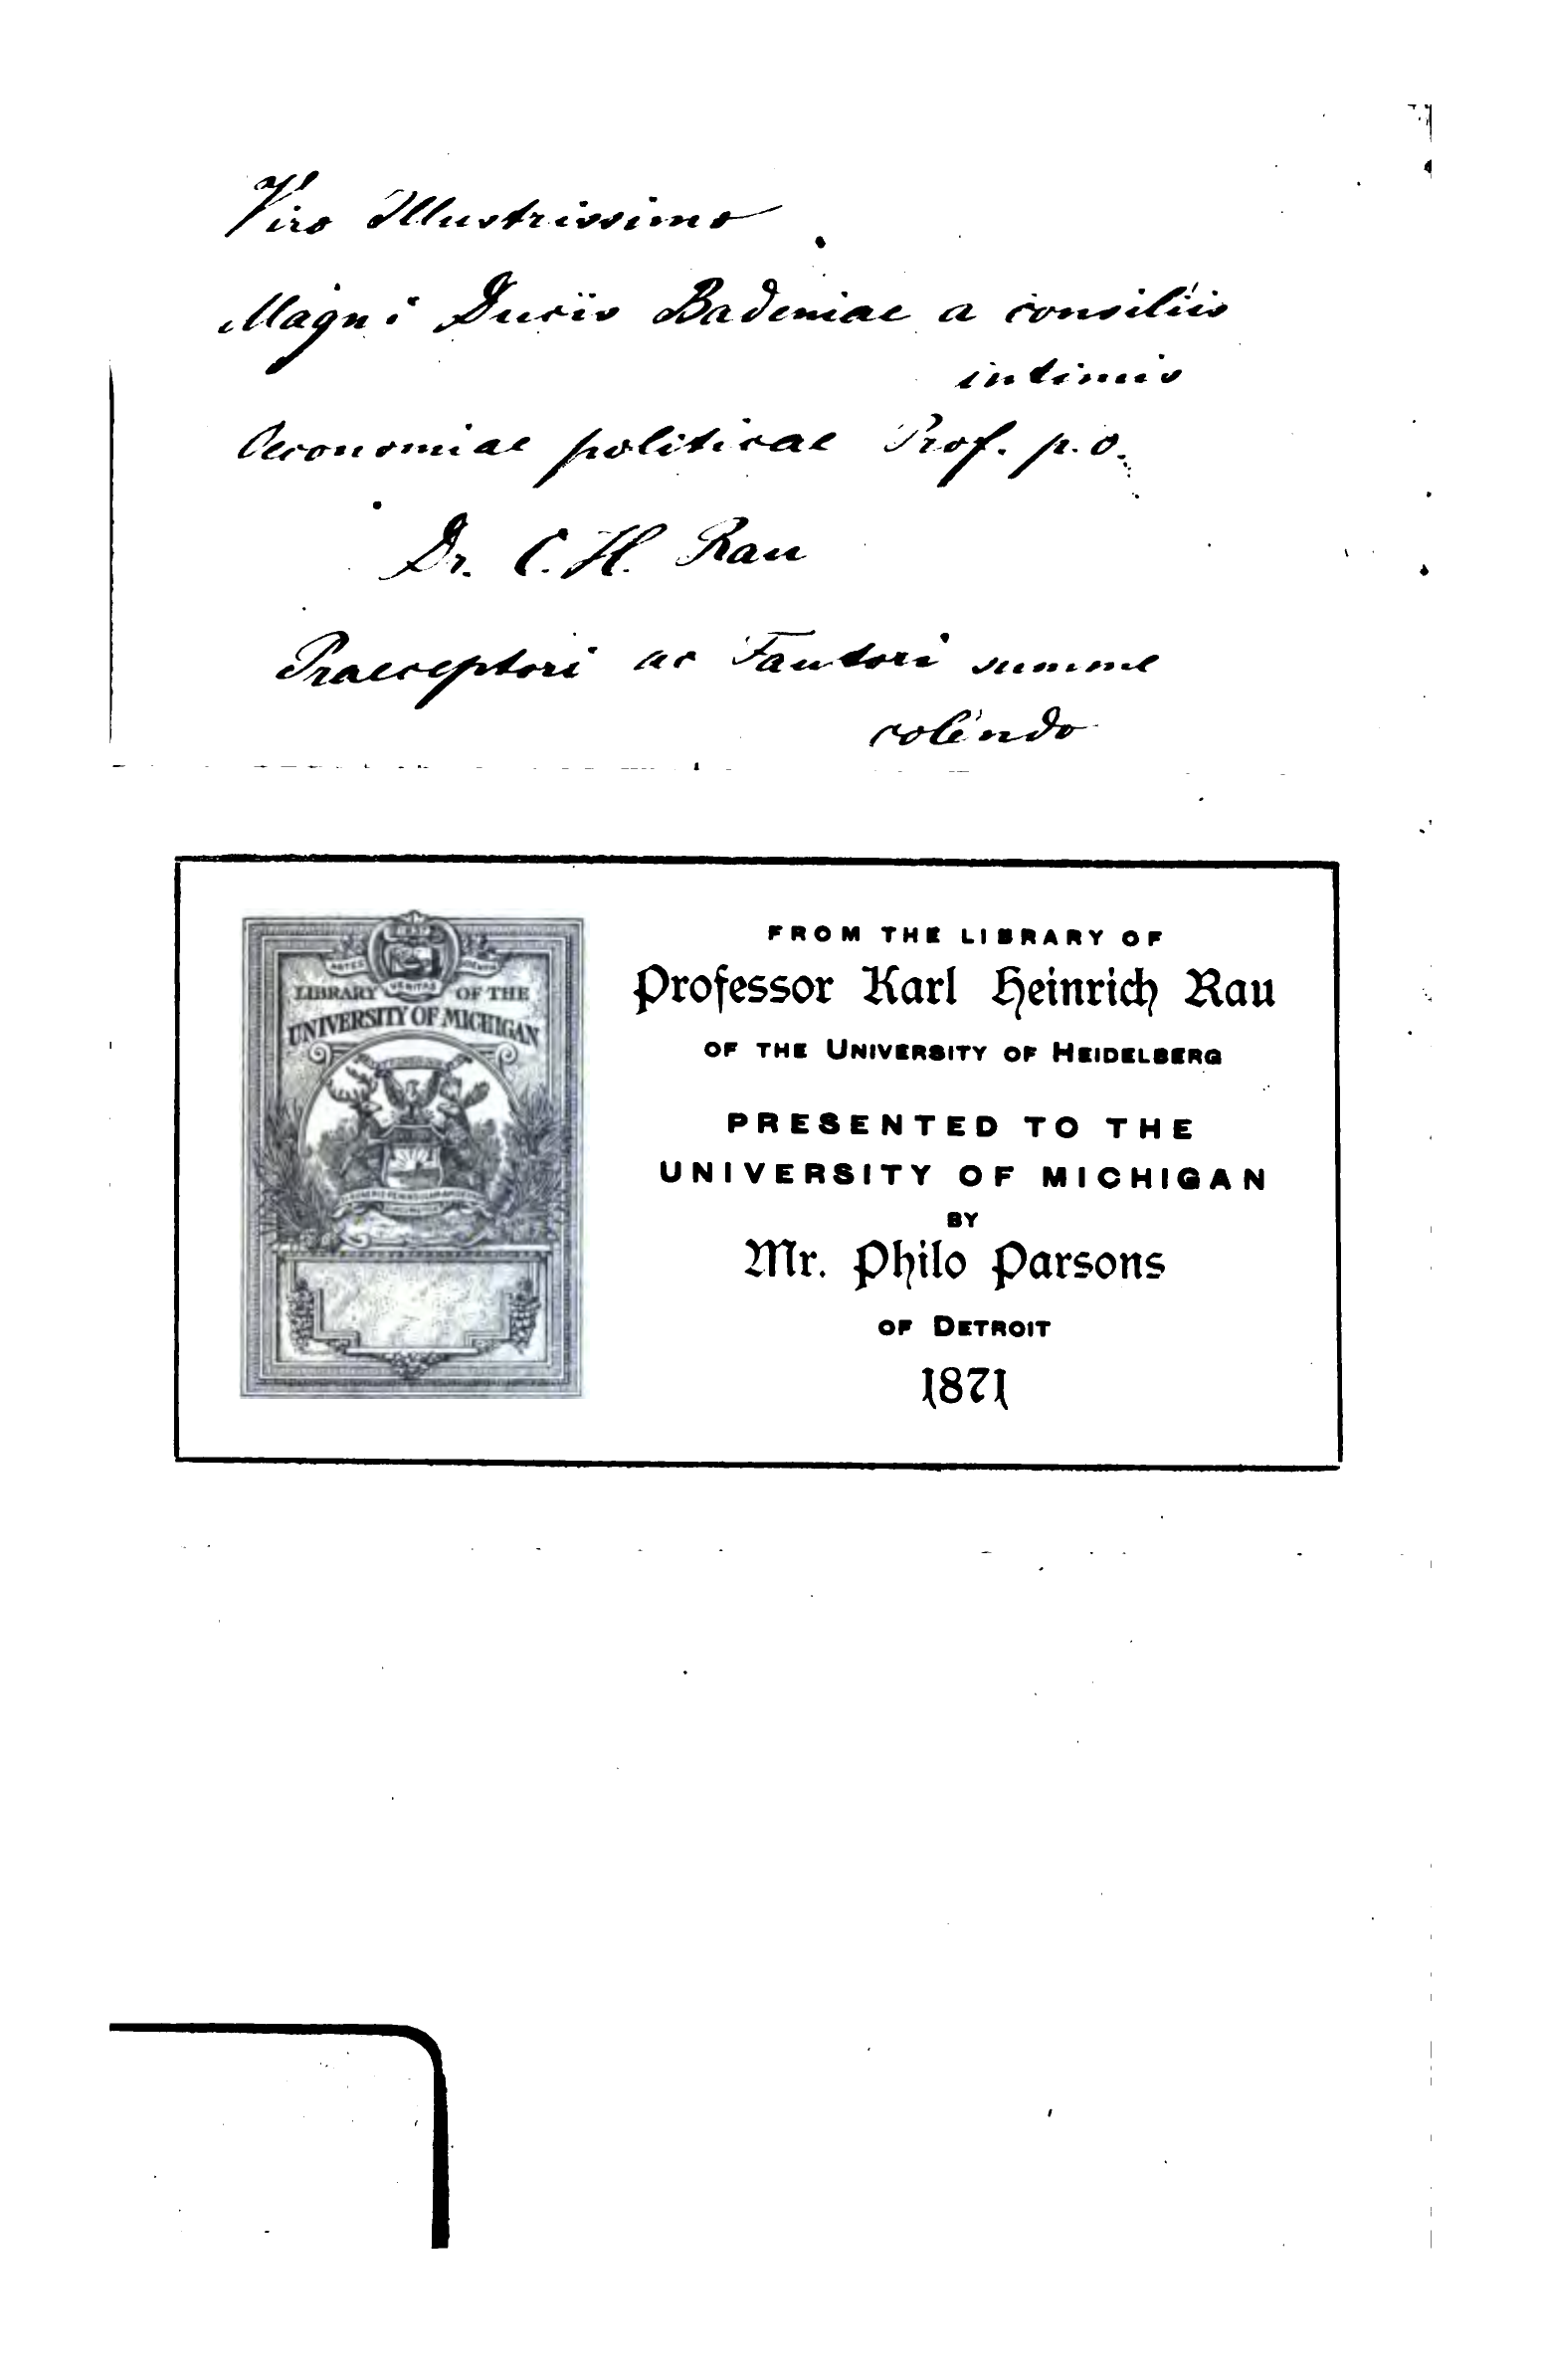 Viro Illustrissimo
Magni Ducis Badeniae a consiliis
intimis
Oeconomiae politicae Prof. p. o.
Dr. C. H. Rau
Praeceptori ac Fautori summe
colendo
ARTES
SCIENTIA
VERITAS
LIBRARY OF THE
UNIVERSITY OF MICHIGAN
FROM THE LIBRARY OF
Professor Karl Heinrich Rau
OF THE UNIVERSITY OF HEIDELBERG
PRESENTED TO THE
UNIVERSITY OF MICHIGAN
BY
Mr. Philo Parsons
OF DETROIT
1871